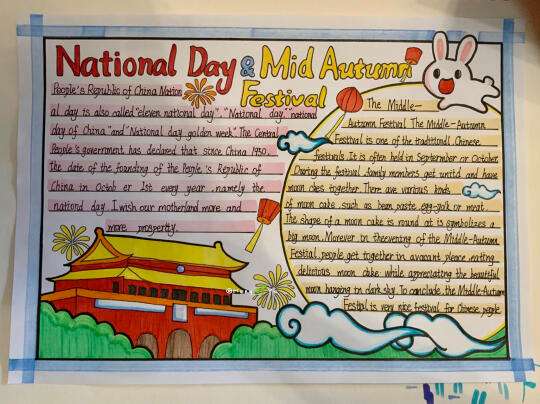 National Day & Mid Autumn
Festival
People's Republic of China Nation
al day is also called "eleven national day", "National day", "national
day of China" and "National day golden week". The Central
People's government has declared that since China 1950,
The date of the founding of the People's Republic of
China in Octob er 1st every year, namely the
nationd day. I wish our motherland more and
more prosperity.
The Middle-
Autumn Festival The Middle-Autumn
Festival is one of the traditional Chinese
festivals. It is often held in September or October.
During the festival, family members get unitd and have
moon ckes together. There are various kinds
of moon cake, such as bean paste, egg-yolk or meat.
The shape of a moon cake is round at is symbolizes a
big moon. Morever in the evening of the Middle-Autumn
Festival, people get together in avacant pleace eating
delicious moon cake while appreciating the beautiful
moon hanging in dark sky. To conclude, the Middle-Autumn
Festival is very nice festival for Chinese people